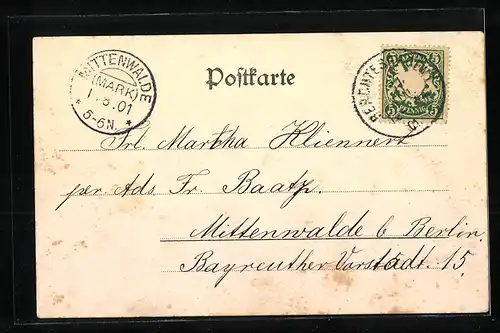 MITTENWALDE
(MARK)
1.8.01
* 5-6N. *
Postkarte
5 5
PFENNIG
Frl. Martha Kliennert
per. Ads. Fr. Baatz.
Mittenwalde b Berlin.
Bayreuther Vorstadt. 15.